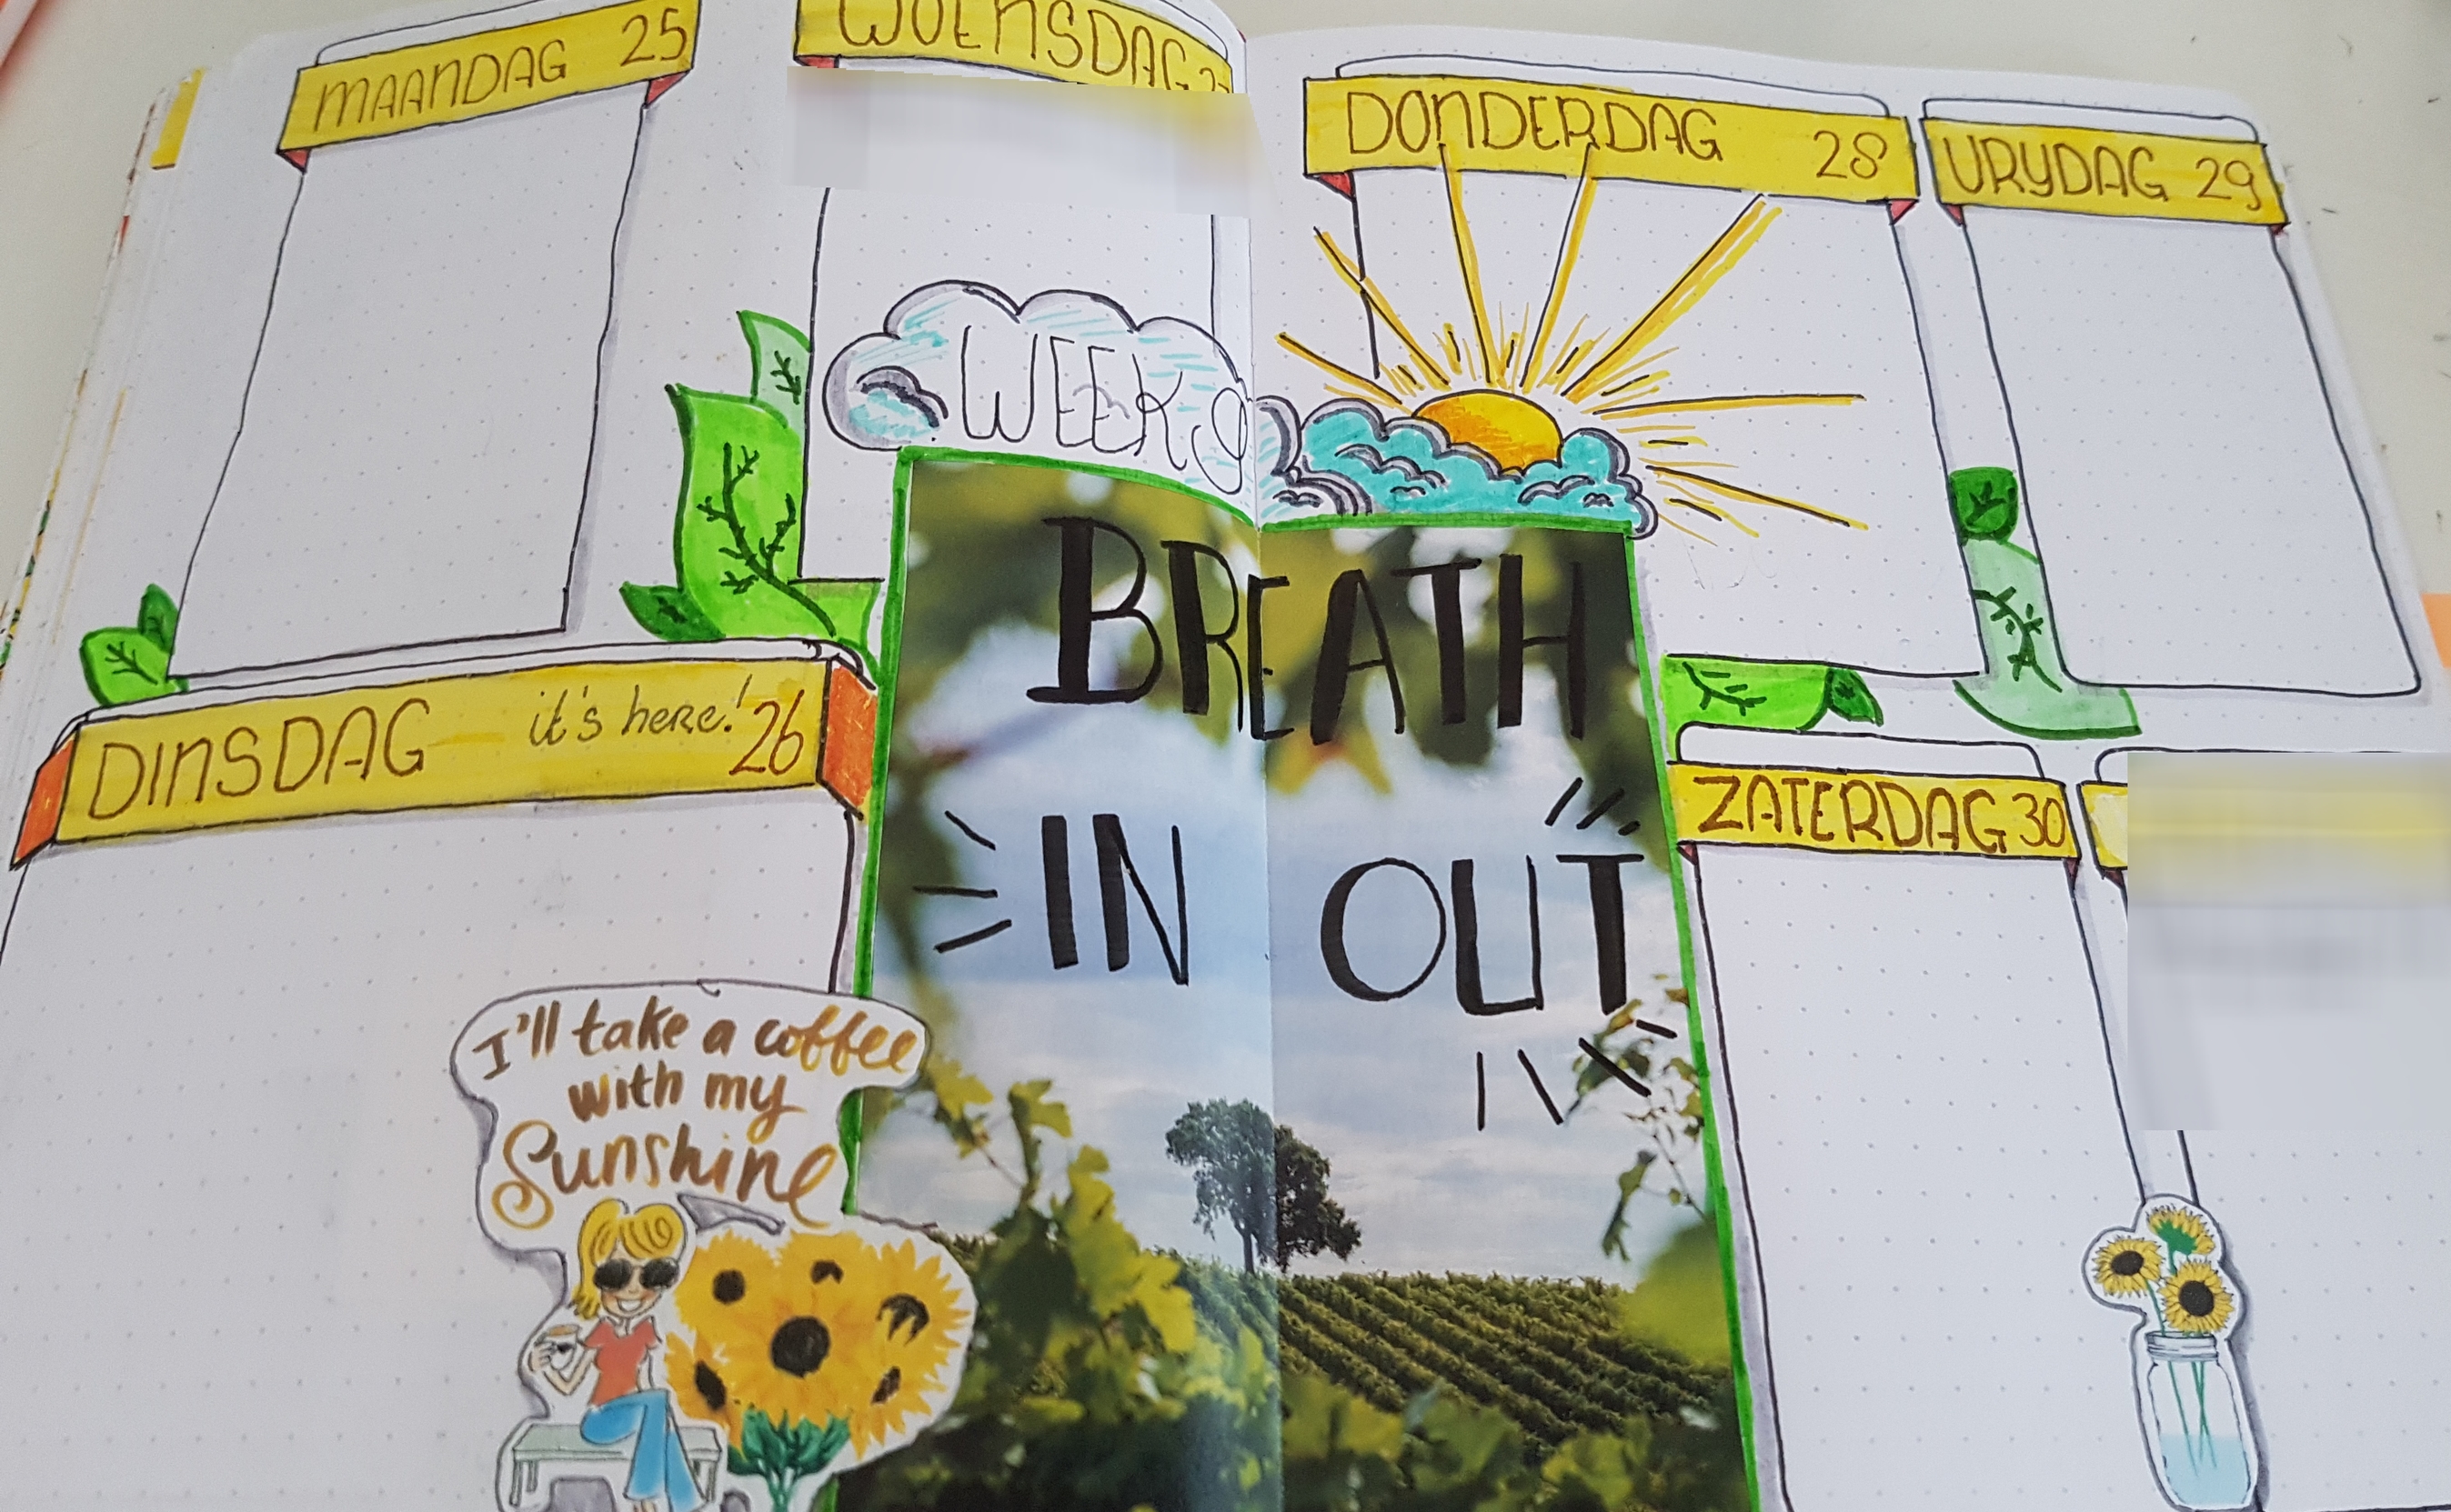 MAANDAG 25
WOENSDAG 27
DONDERDAG 28
VRYDAG 29
WEEK 9
DINSDAG it's here! 26
BREATH
IN OUT
ZATERDAG 30
I'll take a coffee
with my
Sunshine